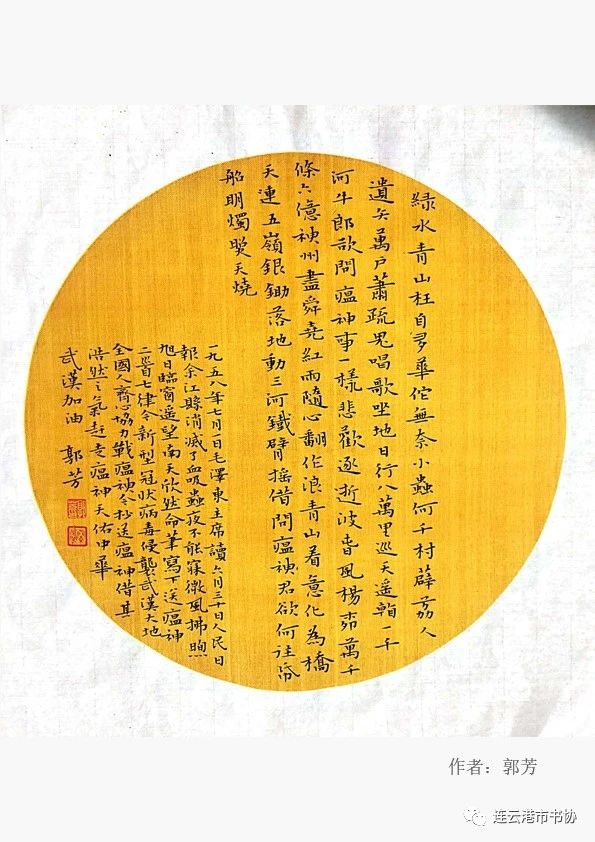 緑水青山枉自多華佗無奈小蟲何千村薜荔人
遺矢萬户蕭疏鬼唱歌坐地日行八萬里巡天遥看一千
河牛郎欲問瘟神事一樣悲歡逐逝波春風楊柳萬千
條六億神州盡舜堯紅雨隨心翻作浪青山着意化為橋
天連五嶺銀鋤落地動三河鐵臂摇借問瘟神君欲何往紙
船明燭照天燒
一九五八年七月一日毛澤東主席讀六月三十日人民日
報余江縣消滅了血吸蟲夜不能寐微風拂煦
旭日臨窗遥望南天欣然命筆寫下送瘟神
二首七律今新型冠狀病毒侵襲武漢大地
全國人齊心協力戰瘟神今抄送瘟神借其
浩然之氣趕走瘟神天佑中華
武漢加油 郭芳
作者：郭芳
连云港市书协